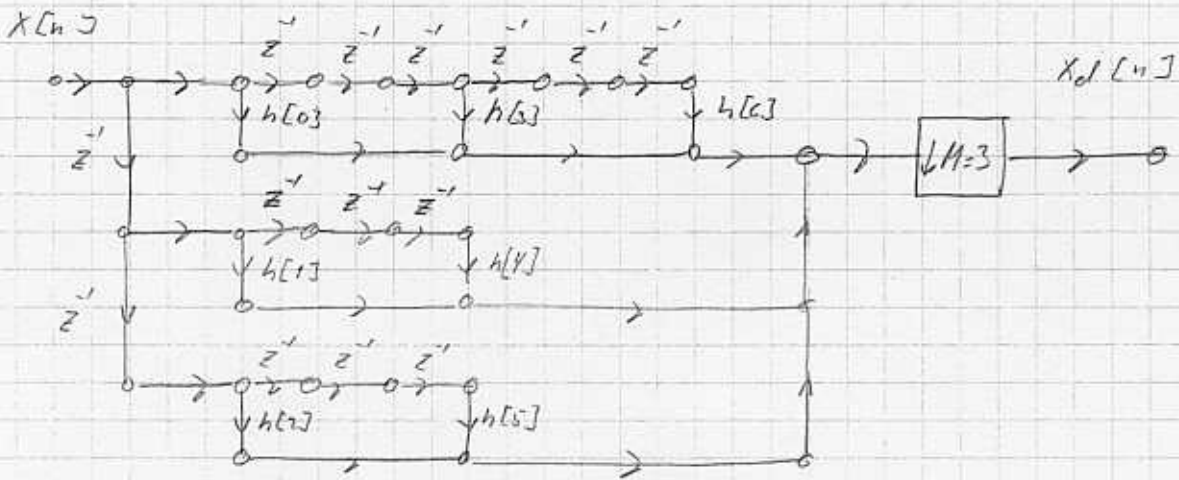 X[n]
z⁻¹ z⁻¹ z⁻¹ z⁻¹ z⁻¹ z⁻¹
Xd[n]
h[0] h[3] h[6]
z⁻¹
↓M=3
z⁻¹ z⁻¹ z⁻¹
h[1] h[4]
z⁻¹
z⁻¹ z⁻¹ z⁻¹
h[2] h[5]